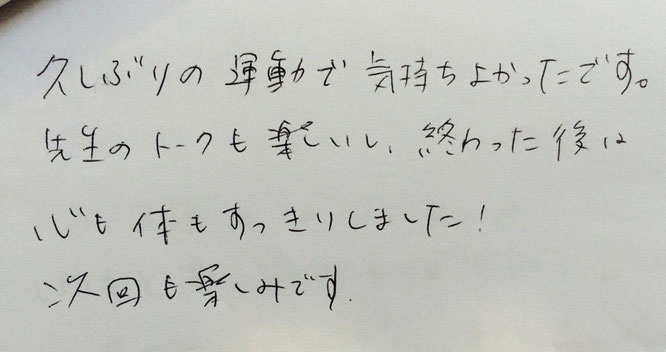 久しぶりの運動で気持ちよかったです。
先生のトークも楽しいし、終わった後は
心も体もすっきりしました!
次回も楽しみです.